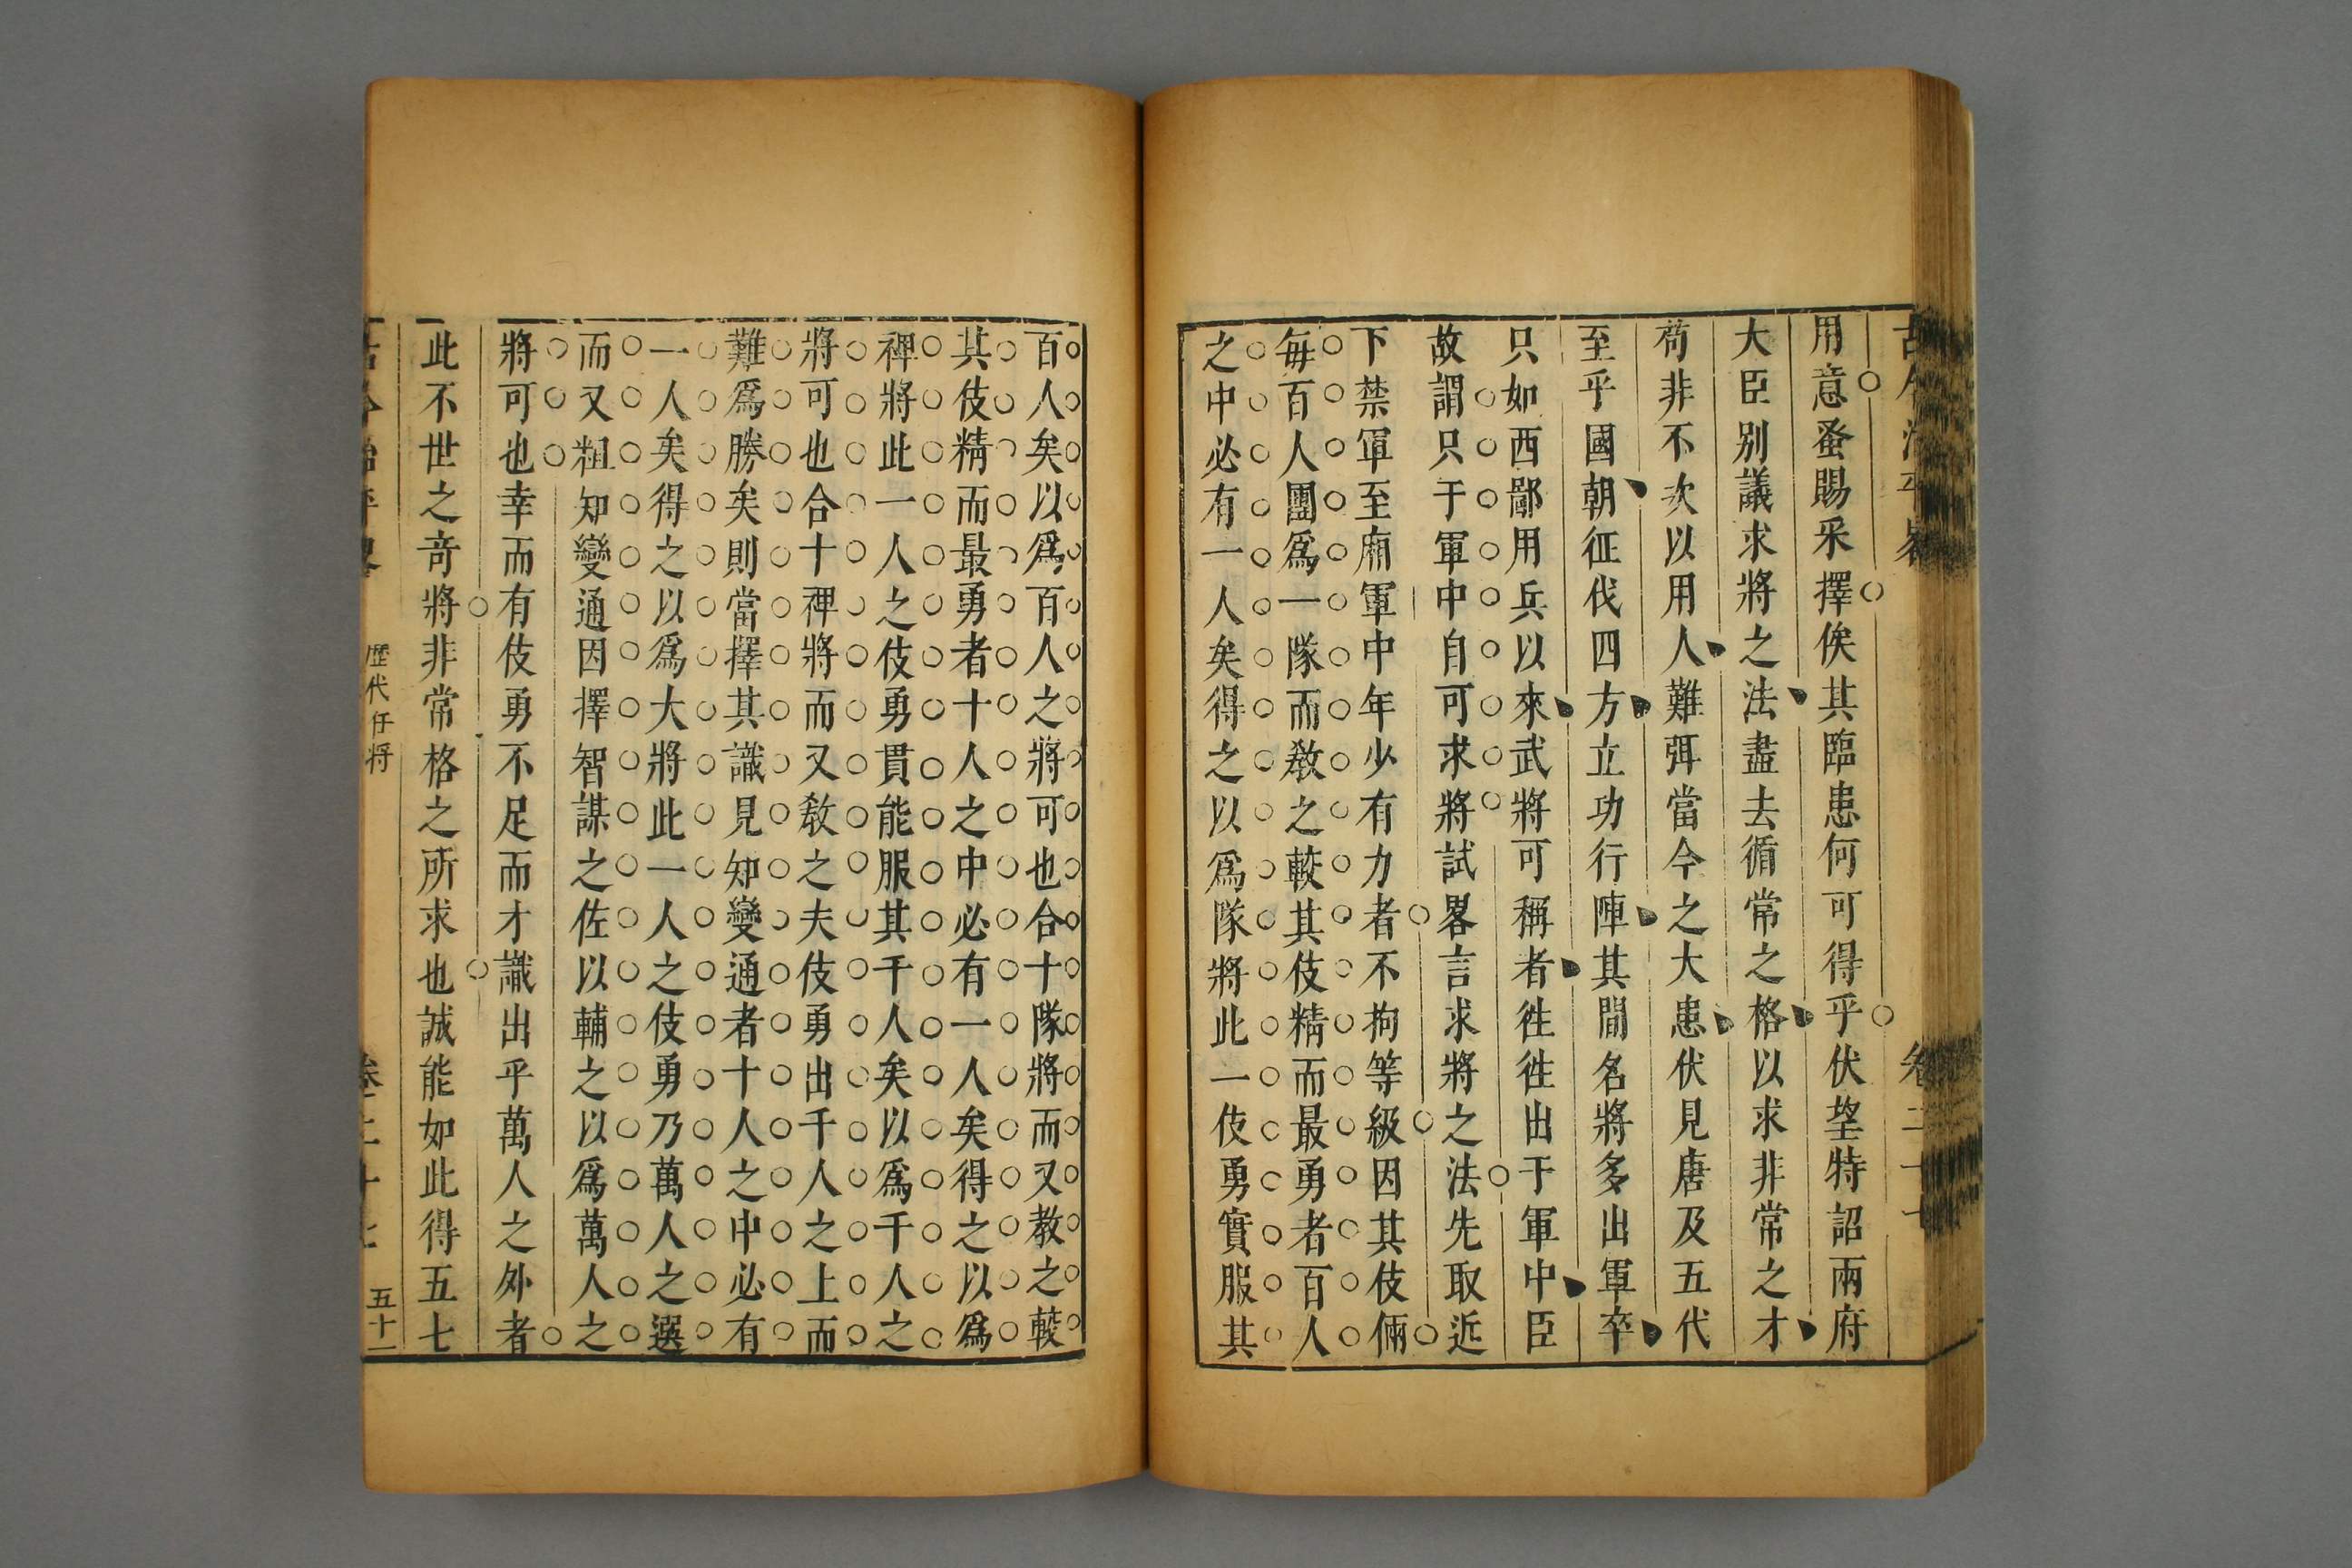 用意蚤賜采擇俟其臨患何可得乎伏望特詔兩府
大臣别議求將之法盡去循常之格以求非常之才
苟非不次以用人難弭當今之大患伏見唐及五代
至乎國朝征伐四方立功行陣其間名將多出軍卒
只如西鄙用兵以來武將可稱者徃徃出于軍中臣
故謂只于軍中自可求將試畧言求將之法先取近
下禁軍至廂軍中年少有力者不拘等級因其伎倆
每百人團爲一隊而敎之較其伎精而最勇者百人
之中必有一人矣得之以爲隊將此一伎勇實服其
百人矣以爲百人之將可也合十隊將而又教之較
其伎精而最勇者十人之中必有一人矣得之以爲
裨將此一人之伎勇貫能服其千人矣以爲千人之
將可也合十裨將而又敎之夫伎勇出千人之上而
難爲勝矣則當擇其識見知變通者十人之中必有
一人矣得之以爲大將此一人之伎勇乃萬人之選
而又粗知變通因擇智謀之佐以輔之以爲萬人之
將可也幸而有伎勇不足而才識出乎萬人之外者
此不世之奇將非常格之所求也誠能如此得五七
歷代任将
五十一